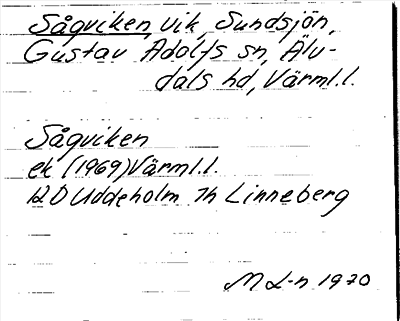 Sågviken, vik, Sundsjön,
Gustav Adolfs sn, Älv-
dals hd, Värml.l.
Sågviken
ek (1969) Värml.l.
12D Uddeholm 7h Linneberg
M L-n 1970